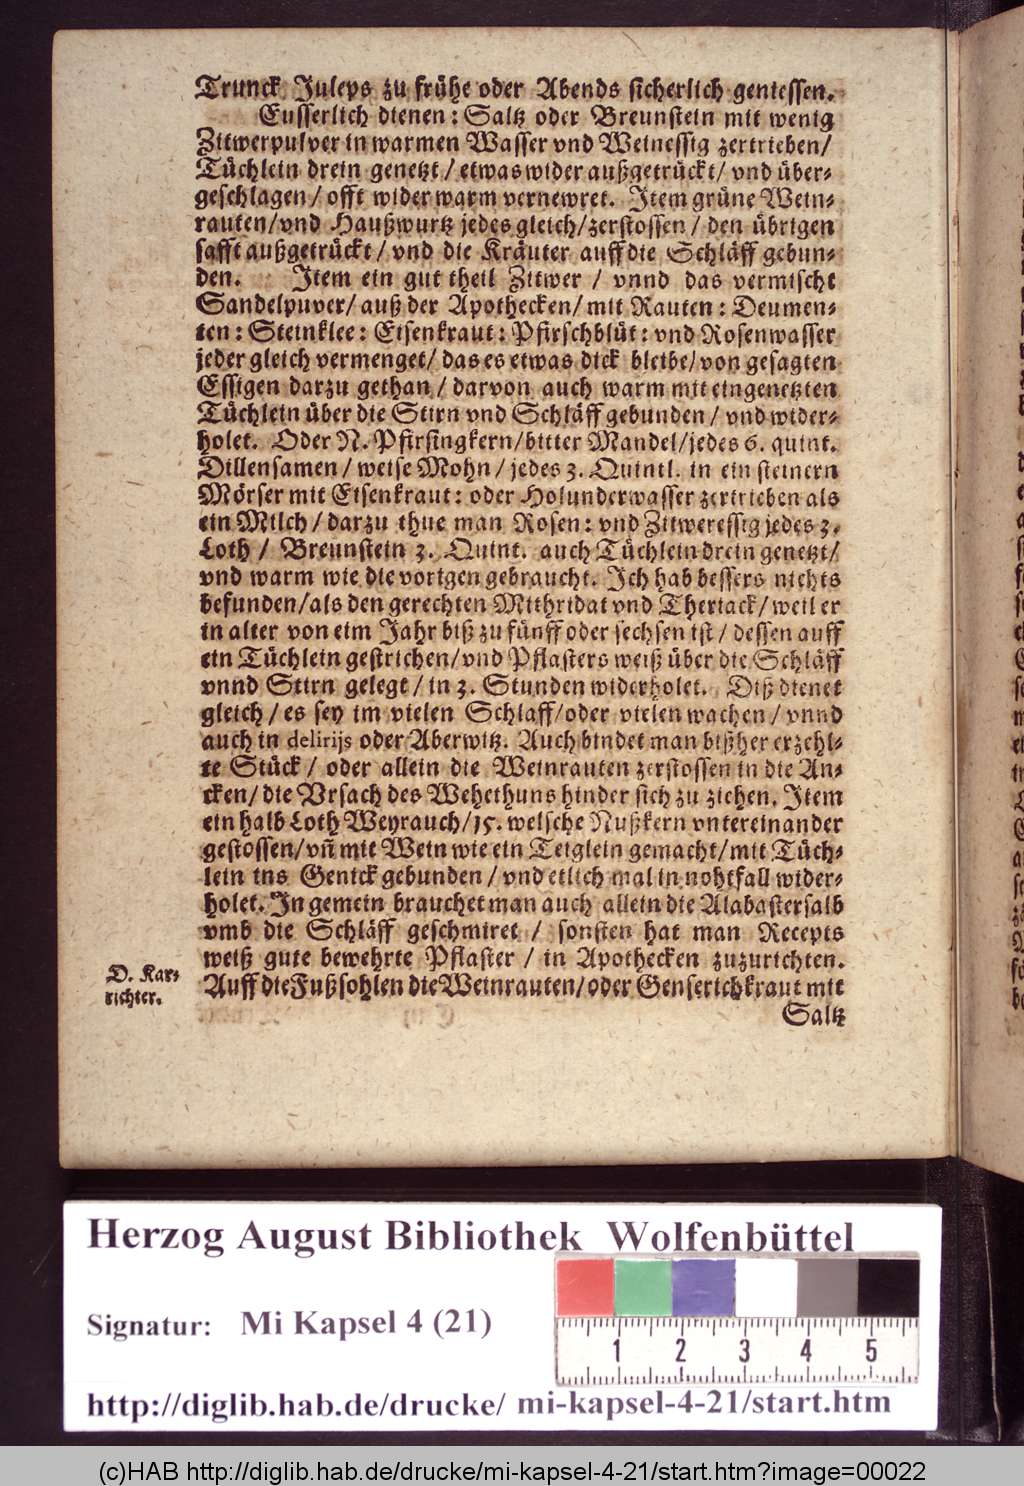 Trunck Juleps zu frühe oder Abends sicherlich geniessen.
Eusserlich dienen: Saltz oder Breunstein mit wenig
Zitwerpulver in warmen Wasser vnd Weinessig zertrieben/
Tüchlein drein genetzt / etwas wider außgetrückt/ vnd über-
geschlagen / offt wider warm vernewret. Item grüne Wein-
rauten/vnd Haußwurtz jedes gleich/zerstossen / den übrigen
safft außgetrückt / vnd die Kräuter auff die Schläff gebun-
den. Item ein gut theil Zitwer / vnnd das vermischt
Sandelpuver/ auß der Apothecken/ mit Rauten: Deumen-
ten: Steinklee: Eisenkraut: Pfirschblüt: vnd Rosenwasser
jeder gleich vermenget/ das es etwas dick bleibe/ von gesagten
Essigen darzu gethan / darvon auch warm mit eingenetzten
Tüchlein über die Stirn vnd Schläff gebunden / vnd wider-
holet. Oder N. Pfirsingkern/bitter Mandel/jedes 6. quint.
Dillensamen / weise Mohn / jedes 3. Quintl. in ein steinern
Mörser mit Eisenkraut: oder Holunderwasser zertrieben als
ein Milch / darzu thue man Rosen: vnd Zitweressig jedes 3.
Loth / Breunstein 3. Quint. auch Tüchlein drein genetzt/
vnd warm wie die vorigen gebraucht. Ich hab bessers nichts
befunden/als den gerechten Mithridat vnd Theriack/ weil er
in alter von eim Jahr biß zu fünff oder sechsen ist / dessen auff
ein Tüchlein gestrichen/vnd Pflasters weiß über die Schläff
vnnd Stirn gelegt / in 3. Stunden widerholet. Diß dienet
gleich / es sey im vielen Schlaff/oder vielen wachen / vnnd
auch in delirijs oder Aberwitz. Auch bindet man bißher erzehl-
te Stück / oder allein die Weinrauten zerstossen in die An-
cken/ die Vrsach des Wehethuns hinder sich zu ziehen. Item
ein halb Loth Weyrauch/15. welsche Nußkern vntereinander
gestossen/vn̄ mit Wein wie ein Teiglein gemacht/mit Tüch-
lein ins Genick gebunden / vnd etlich mal in nohtfall wider-
holet. In gemein brauchet man auch allein die Alabastersalb
vmb die Schläff geschmiret / sonsten hat man Recepts
weiß gute bewehrte Pflaster / in Apothecken zuzurichten.
D. Kar-
richter.
Auff die Fußsohlen die Weinrauten/ oder Genserichkraut mit
Saltz
Herzog August Bibliothek Wolfenbüttel
Signatur: Mi Kapsel 4 (21)
1 2 3 4 5
http://diglib.hab.de/drucke/ mi-kapsel-4-21/start.htm
(c)HAB http://diglib.hab.de/drucke/mi-kapsel-4-21/start.htm?image=00022